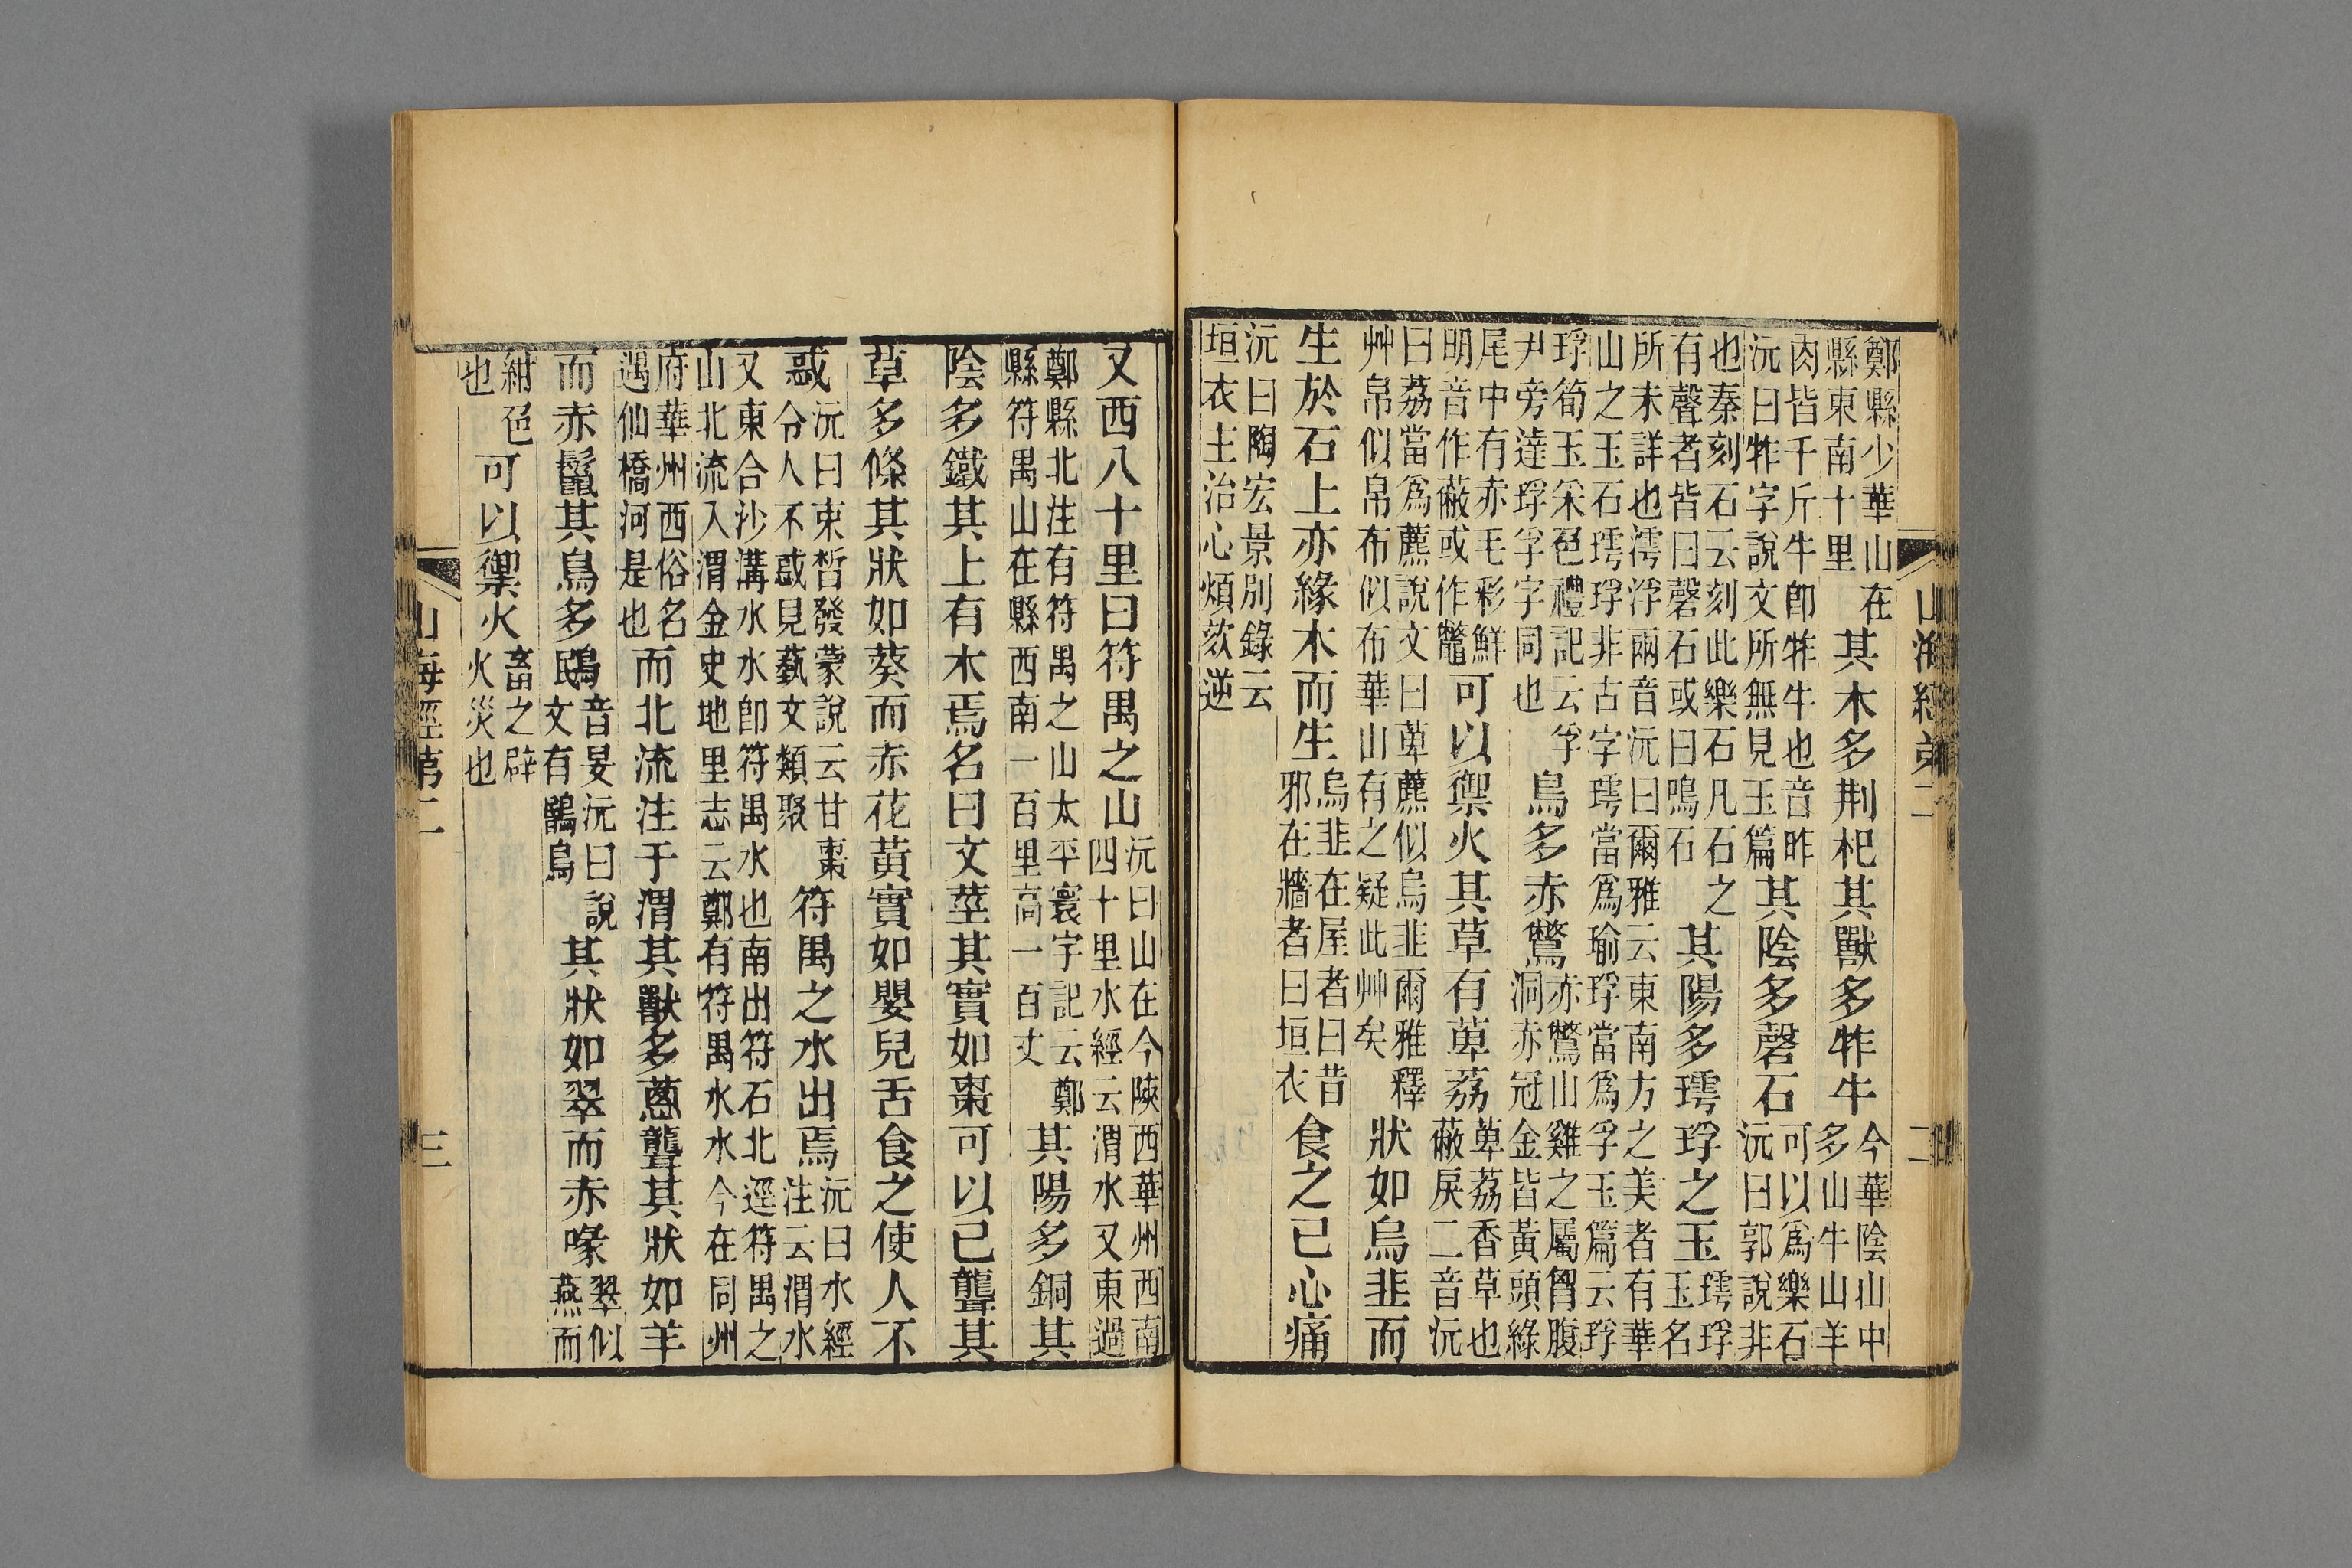 山海經第二
二
鄭縣少華山在
縣東南十里
其木多荆杞其獸多㸲牛
今華陰山中
多山牛山羊
肉皆千斤牛卽㸲牛也音昨
沅曰㸲字說文所無見玉篇
其陰多磬石
可以爲樂石
沅曰郭說非
也秦刻石云刻此樂石凡石之
有聲者皆曰磬石或曰鳴石
其陽多㻬琈之玉
㻬琈
玉名
所未詳也㵗浮兩音沅曰爾雅云東南方之美者有華
山之玉石㻬琈非古字㻬當爲瑜琈當爲孚玉篇云琈
琈筍玉采色禮記云孚
尹旁達琈孚字同也
鳥多赤鷩
赤鷩山雞之屬胷腹
洞赤冠金皆黃頭綠
尾中有赤毛彩鮮
明音作蔽或作鼈
可以禦火其草有萆荔
萆荔香草也
蔽戾二音沅
曰荔當爲藨說文曰萆藨似烏韭爾雅釋
艸帛似帛布似布華山有之疑此艸矣
狀如烏韭而
生於石上亦緣木而生
烏韭在屋者曰昔
邪在牆者曰垣衣
食之已心痛
沅曰陶宏景別錄云
垣衣主治心煩欬逆
又西八十里曰符禺之山
沅曰山在今陝西華州西南
四十里水經云渭水又東過
鄭縣北注有符禺之山太平寰宇記云鄭
縣符禺山在縣西南一百里高一百丈
其陽多銅其
陰多鐵其上有木焉名曰文莖其實如棗可以已聾其
草多條其狀如葵而赤花黃實如嬰兒舌食之使人不
惑
沅曰束晳發蒙說云甘棗
令人不惑見藝文類聚
符禺之水出焉
沅曰水經
注云渭水
又東合沙溝水水卽符禺水也南出符石北逕符禺之
山北流入渭金史地里志云鄭有符禺水水今在同州
府華州西俗名
遇仙橋河是也
而北流注于渭其獸多蔥聾其狀如羊
而赤鬣其鳥多鴖
音旻沅曰說
文有鷻鳥
其狀如翠而赤喙
翠似
燕而
紺色
也
可以禦火
畜之辟
火災也
山海經第二
三